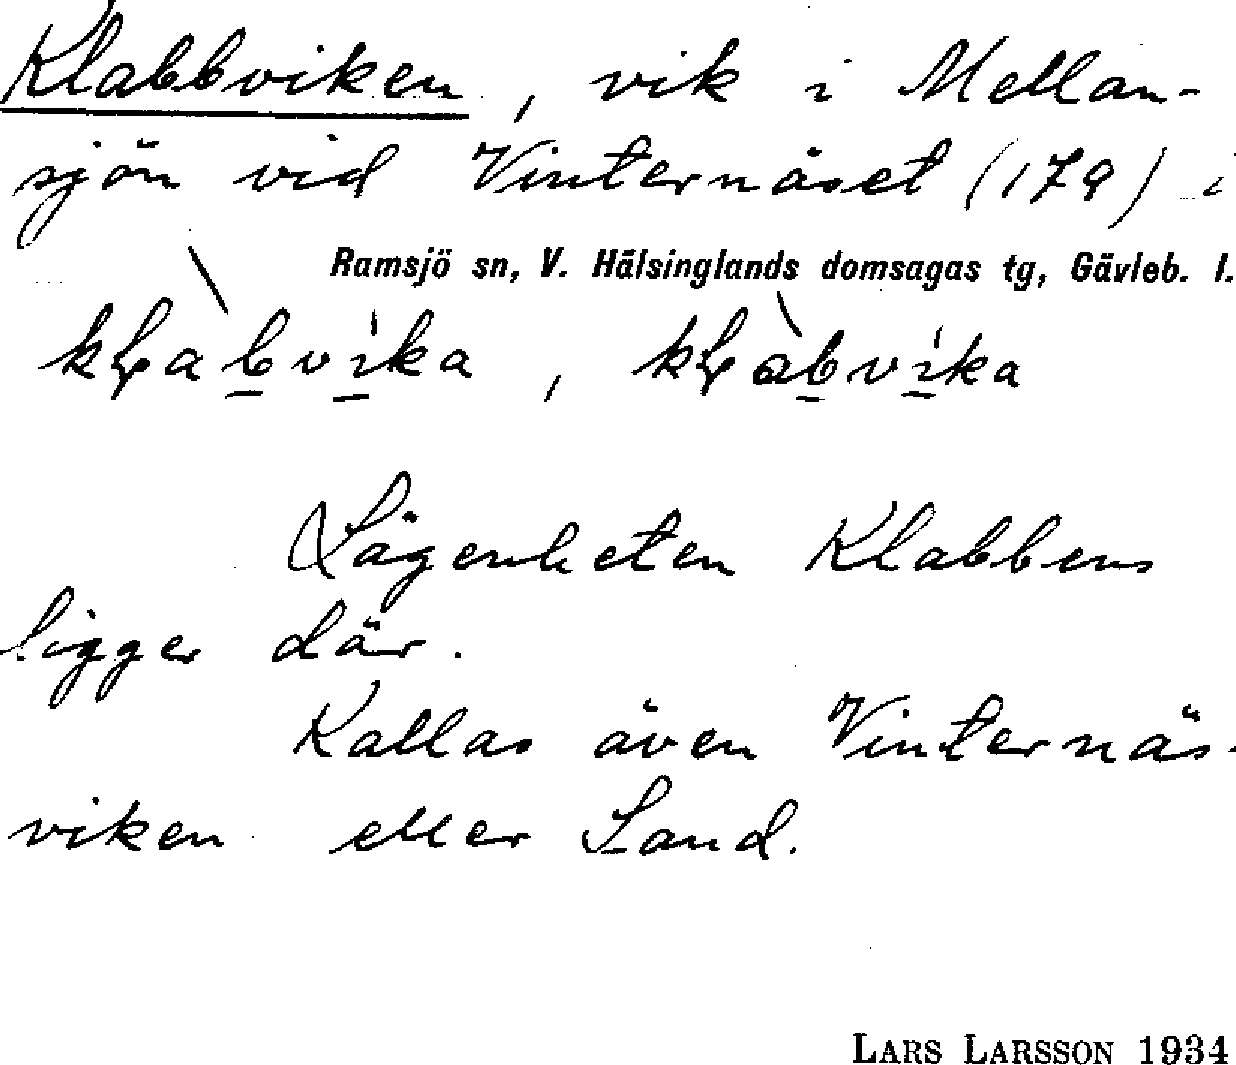 Klabbviken, vik i Mellan-
sjön vid Vinternäset (179) i
Ramsjö sn, V. Hälsinglands domsagas tg, Gävleb. l.
kɬàbvika, kɬàbvika
Lägenheten Klabbens
ligger där.
Kallas även Vinternäs-
viken eller Sand.
LARS LARSSON 1934